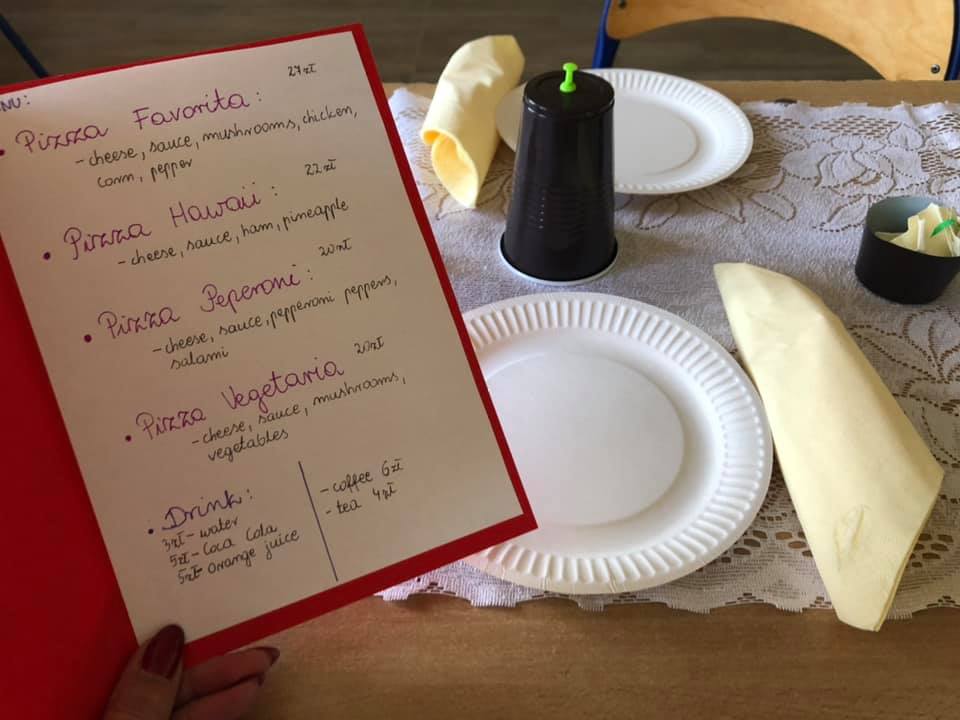 27zł
• Pizza Favorita :
- cheese, sauce, mushrooms, chicken,
corn, pepper
22zł
• Pizza Hawaii :
- cheese, sauce, ham, pineapple
20zł
• Pizza Peperoni :
- cheese, sauce, pepperoni peppers,
salami
20zł
• Pizza Vegetaria
- cheese, sauce, mushrooms,
vegetables
• Drink :
3zł - water
5zł - Coca Cola
5zł - orange juice
- coffee 6zł
- tea 4zł